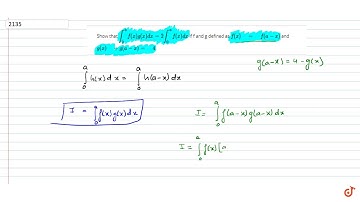 2135
Show that ∫₀ᵃ f(x)g(x)dx = 2∫₀ᵃ f(x)dx if f and g defined as f(x) = f(a-x) and
g(x) g(a-x) =
g(a-x) = 4 - g(x)
∫₀ᵃ h(x) dx = ∫₀ᵃ h(a-x) dx
I = ∫₀ᵃ f(x) g(x) dx
I = ∫₀ᵃ f(a-x) g(a-x) dx
I = ∫₀ᵃ f(x) [a